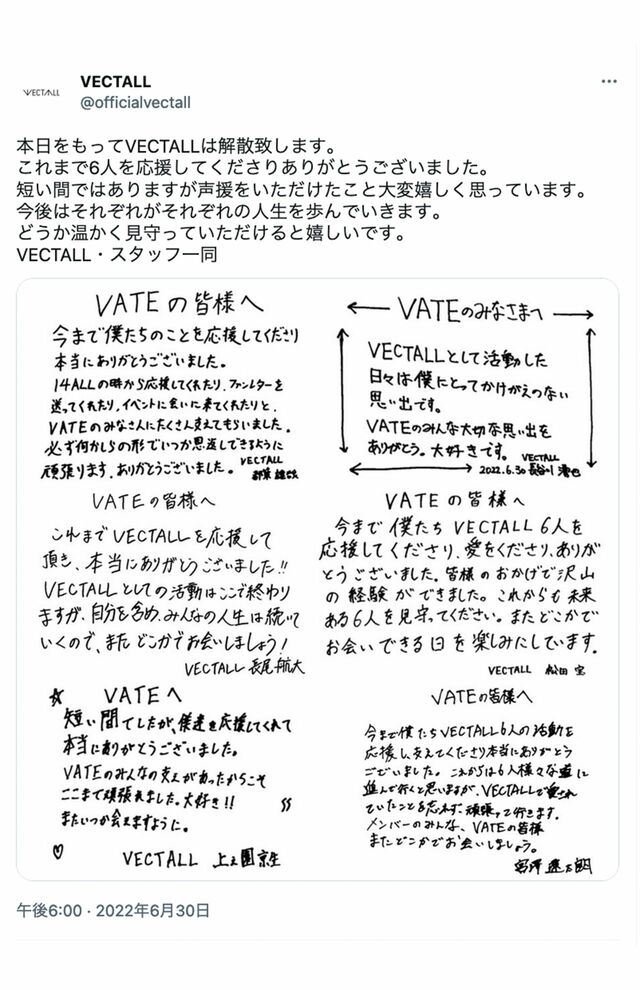 VECTALL
VECTALL
@officialvectall
本日をもってVECTALLは解散致します。
これまで6人を応援してくださりありがとうございました。
短い間ではありますが声援をいただけたこと大変嬉しく思っています。
今後はそれぞれがそれぞれの人生を歩んでいきます。
どうか温かく見守っていただけると嬉しいです。
VECTALL・スタッフ一同
VATEの皆様へ
今まで僕たちのことを応援してくださり
本当にありがとうございました。
14ALLの時から応援してくれたり、ファンレターを
送ってくれたり、イベントに会いに来てくれたりと、
VATEのみなさんにたくさん支えてもらいました。
必ず何かしらの形でいつか恩返しできるように
頑張ります。ありがとうございました。
VECTALL
VATEのみなさまへ
VECTALLとして活動した
日々は僕にとってかけがえのない
思い出です。
VATEのみんな大切な思い出を
ありがとう。大好きです。
VECTALL
2022.6.30 長谷川
VATEの皆様へ
これまでVECTALLを応援して
頂き、本当にありがとうございました!!
VECTALLとしての活動はここで終わり
ますが、自分を含め、みんなの人生は続いて
いくので、またどこかでお会いしましょう!
VECTALL 長尾航大
VATEの皆様へ
今まで僕たちVECTALL6人を
応援してくださり、愛をくださり、ありが
とうございました。皆様のおかげで沢山
の経験ができました。これからも未来
ある6人を見守ってください。またどこかで
お会いできる日を楽しみにしています。
VECTALL 松田
VATEへ
短い間でしたが、僕達を応援してくれて
本当にありがとうございました。
VATEのみんなの支えがあったからこそ
ここまで頑張れました。大好き!!
またいつか会えますように。
VECTALL 上之園京生
VATEの皆様へ
今まで僕たちVECTALL6人の活動を
応援し、支えてくださり本当にありがとう
ございました。これからは6人様々な道に
進んで行くと思いますが、VECTALLで愛され
ていたことを忘れず、頑張って行きます。
メンバーのみんな、VATEの皆様
またどこかでお会いしましょう。
宮澤
午後6:00 · 2022年6月30日